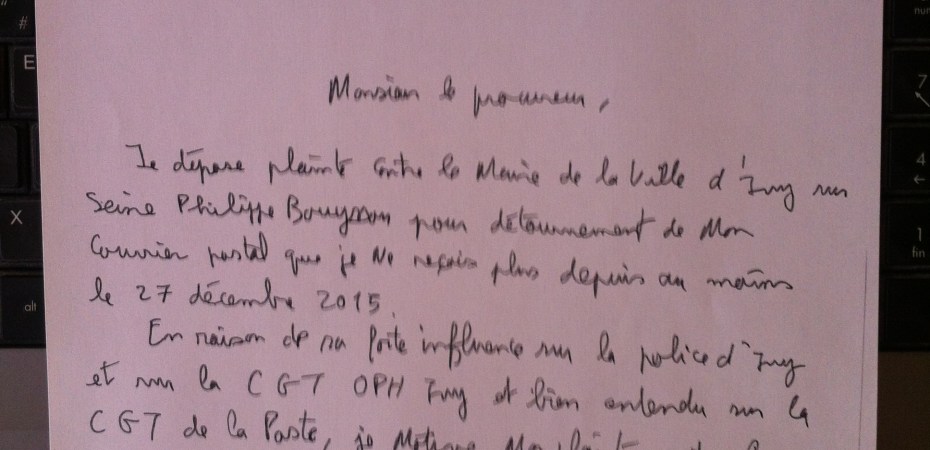 Monsieur le procureur,
Je dépose plainte contre le Maire de la Ville d'Ivry sur
Seine Philippe Bouysson pour détournement de Mon
Courrier postal que je Ne reçois plus depuis au moins
le 27 décembre 2015.
En raison de sa forte influence sur la police d'Ivry
et sur la CGT OPH Ivry et bien entendu sur la
CGT de la Poste, je
#
E
X
alt
7
4
1
fin